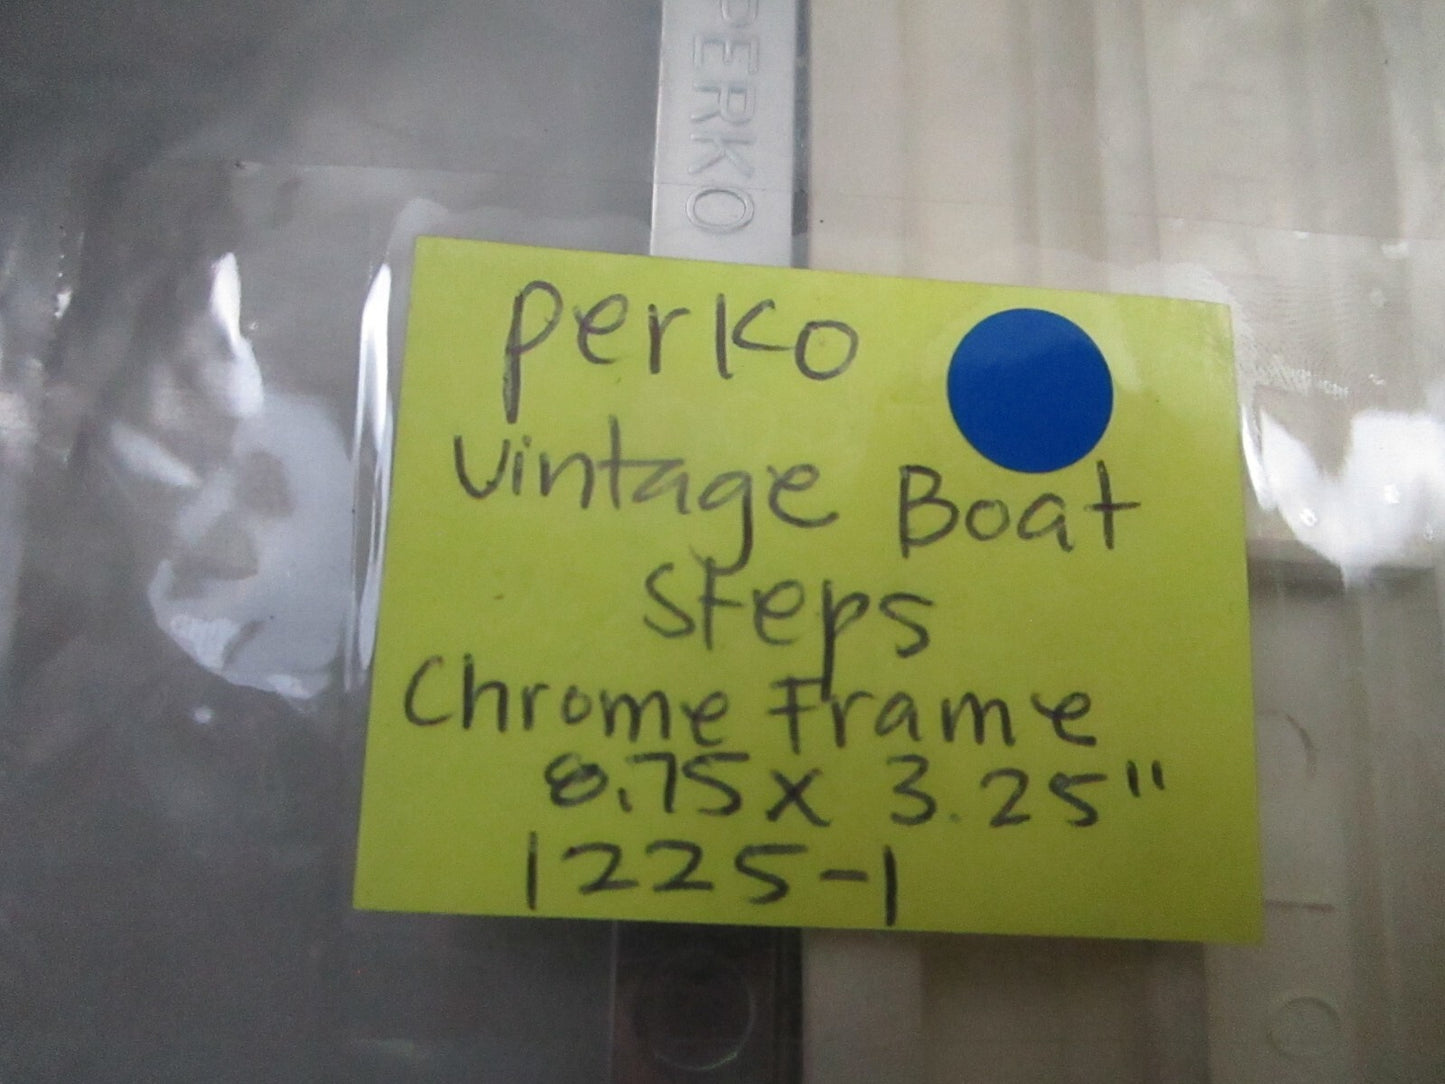 PERKO
perko
Vintage Boat
Steps
Chrome Frame
8.75 x 3.25"
1225-1